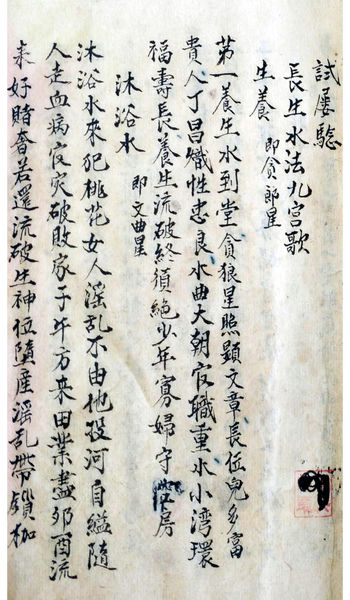 試屡驗
長生水法九宫歌
生養 即貪郎星
第一養生水到堂貪狼星照顕文章長位兒多富
貴人丁昌熾性忠良水曲大朝官職重水小湾環
福壽長養生流破終須絶少年寡婦守空房
沐浴水 即文曲星
沐浴水來犯桃花女人淫乱不由他投河自縊隨
人走血病官灾破敗家子午方来田業盡夘酉流
来好賭奢若還流破生神位墮産淫乱帶鎖枷